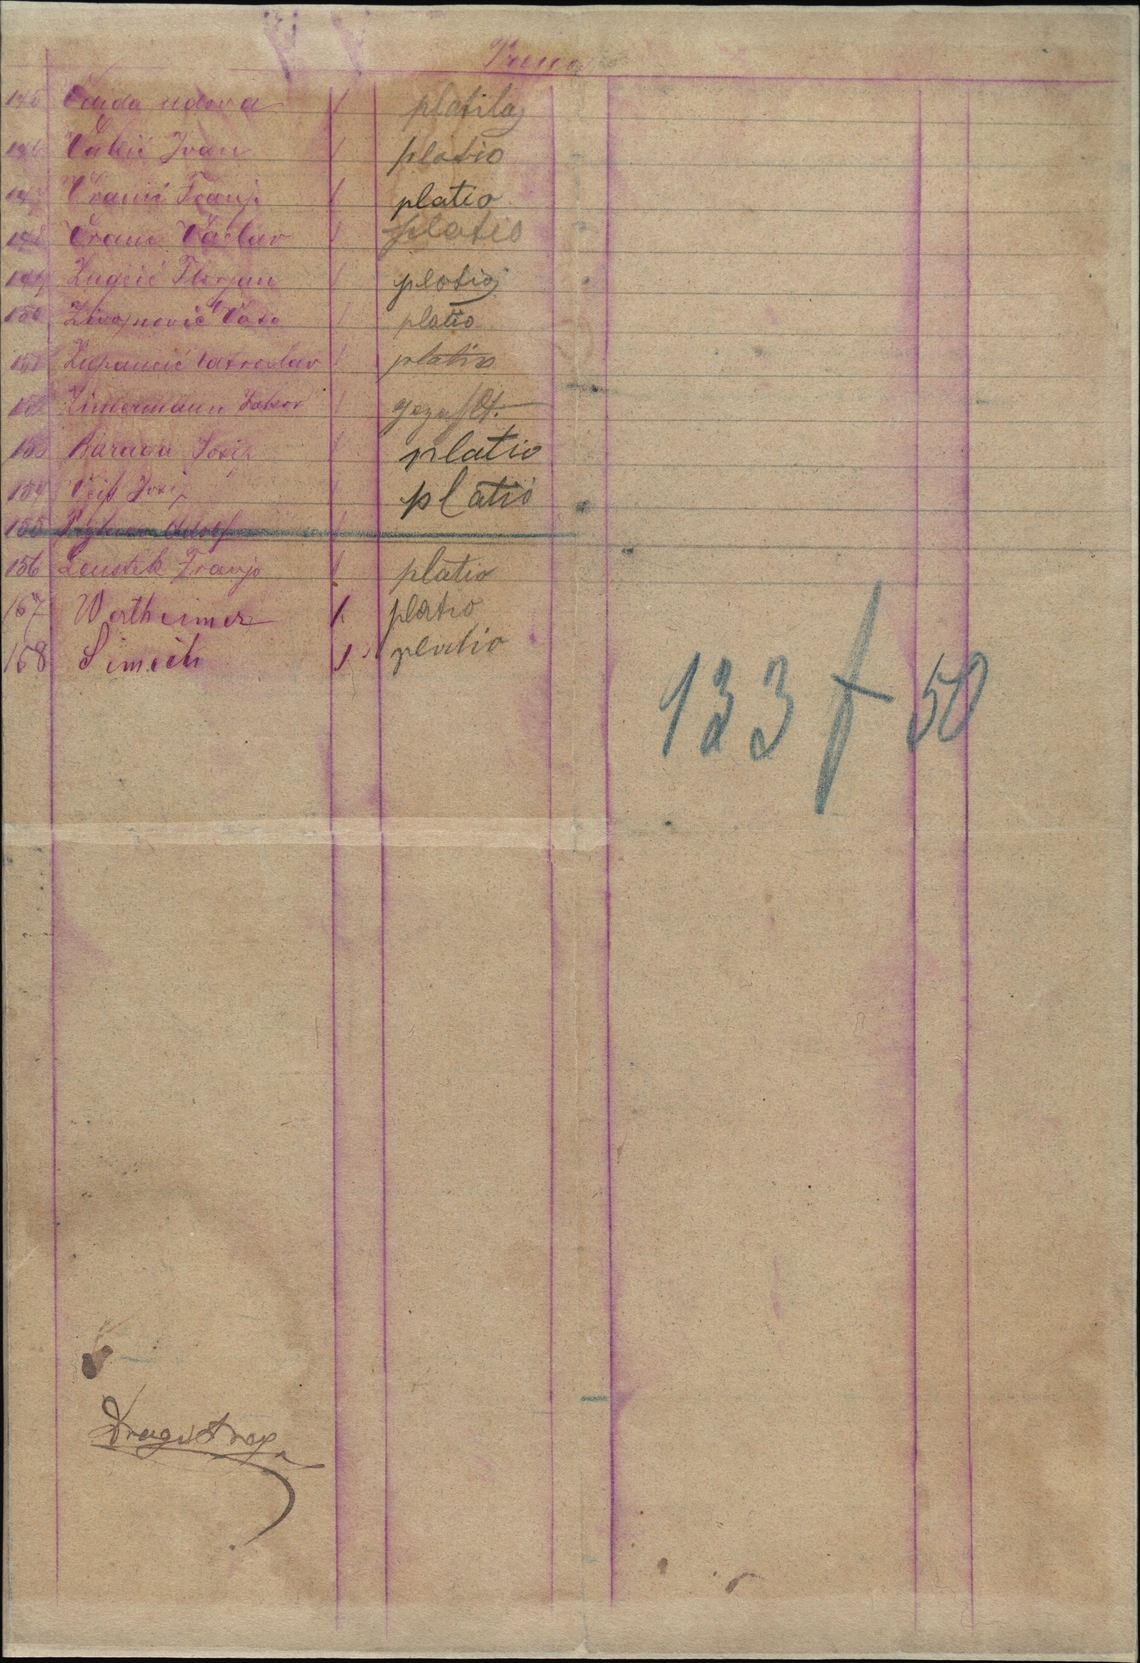 Prenos
145 udova 1 platila
146 Vakić Ivan 1 platio
147 Vranić Franjo 1 platio
148 Vrana Vaclav 1 platio
149 Zugčić Florjan 1 platio
150 Živojnović Vaso 1 platio
151 Zupančić 1 platio
152 Zimermann 1
153 Baraga Josip 1 platio
154 Josip 1 platio
155 Adolf 1
156 Leustek Franjo 1 platio
157 Wertheimer 1. platio
158 Simich 1 platio
133 f 50